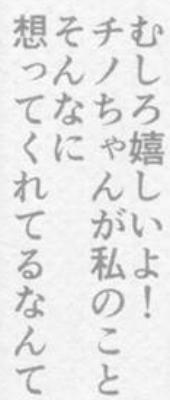 むしろ嬉しいよ！
チノちゃんが私のこと
そんなに
想ってくれてるなんて